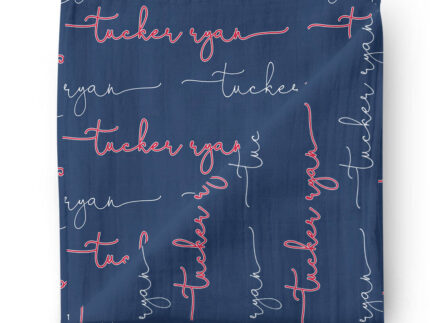 tucker ryan
ryan tucker
tucker ryan
tuc
ryan
tuc
ryan
tucker r
tucker ryan
tucker ryan